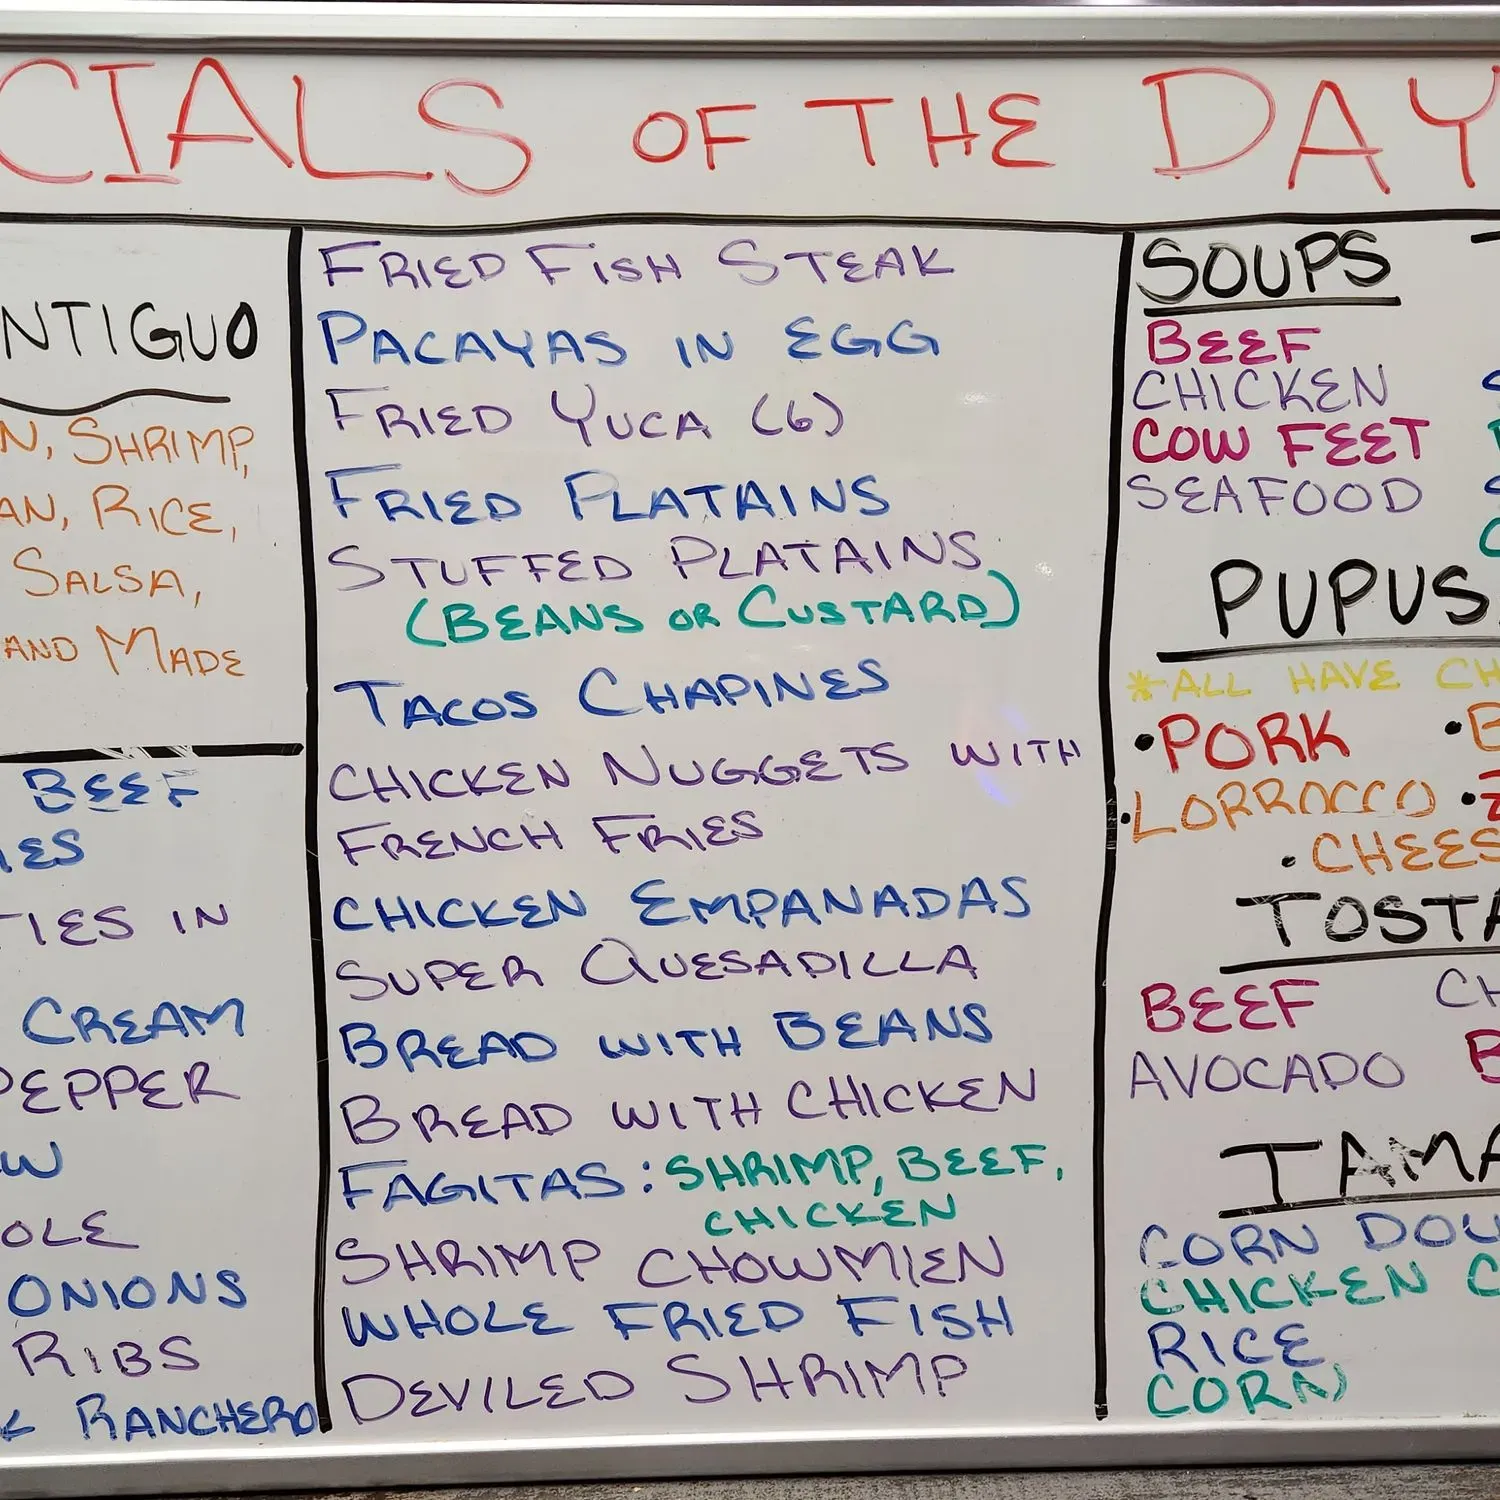 CIALS OF THE DAY
NTIGUO
N, SHRIMP,
AN, RICE,
SALSA,
AND MADE
BEEF
IES
TIES IN
CREAM
PEPPER
W
OLE
ONIONS
RIBS
K RANCHERO
FRIED FISH STEAK
PACAYAS IN EGG
FRIED YUCA (6)
FRIED PLATAINS
STUFFED PLATAINS
(BEANS OR CUSTARD)
TACOS CHAPINES
CHICKEN NUGGETS WITH
FRENCH FRIES
CHICKEN EMPANADAS
SUPER QUESADILLA
BREAD WITH BEANS
BREAD WITH CHICKEN
FAGITAS: SHRIMP, BEEF,
CHICKEN
SHRIMP CHOWMIEN
WHOLE FRIED FISH
DEVILED SHRIMP
SOUPS
BEEF
CHICKEN
COW FEET
SEAFOOD
PUPUS
*ALL HAVE CH
•PORK •B
•LORROCCO •
•CHEES
TOSTA
BEEF CH
AVOCADO B
TAMA
CORN DOU
CHICKEN C
RICE,
CORN